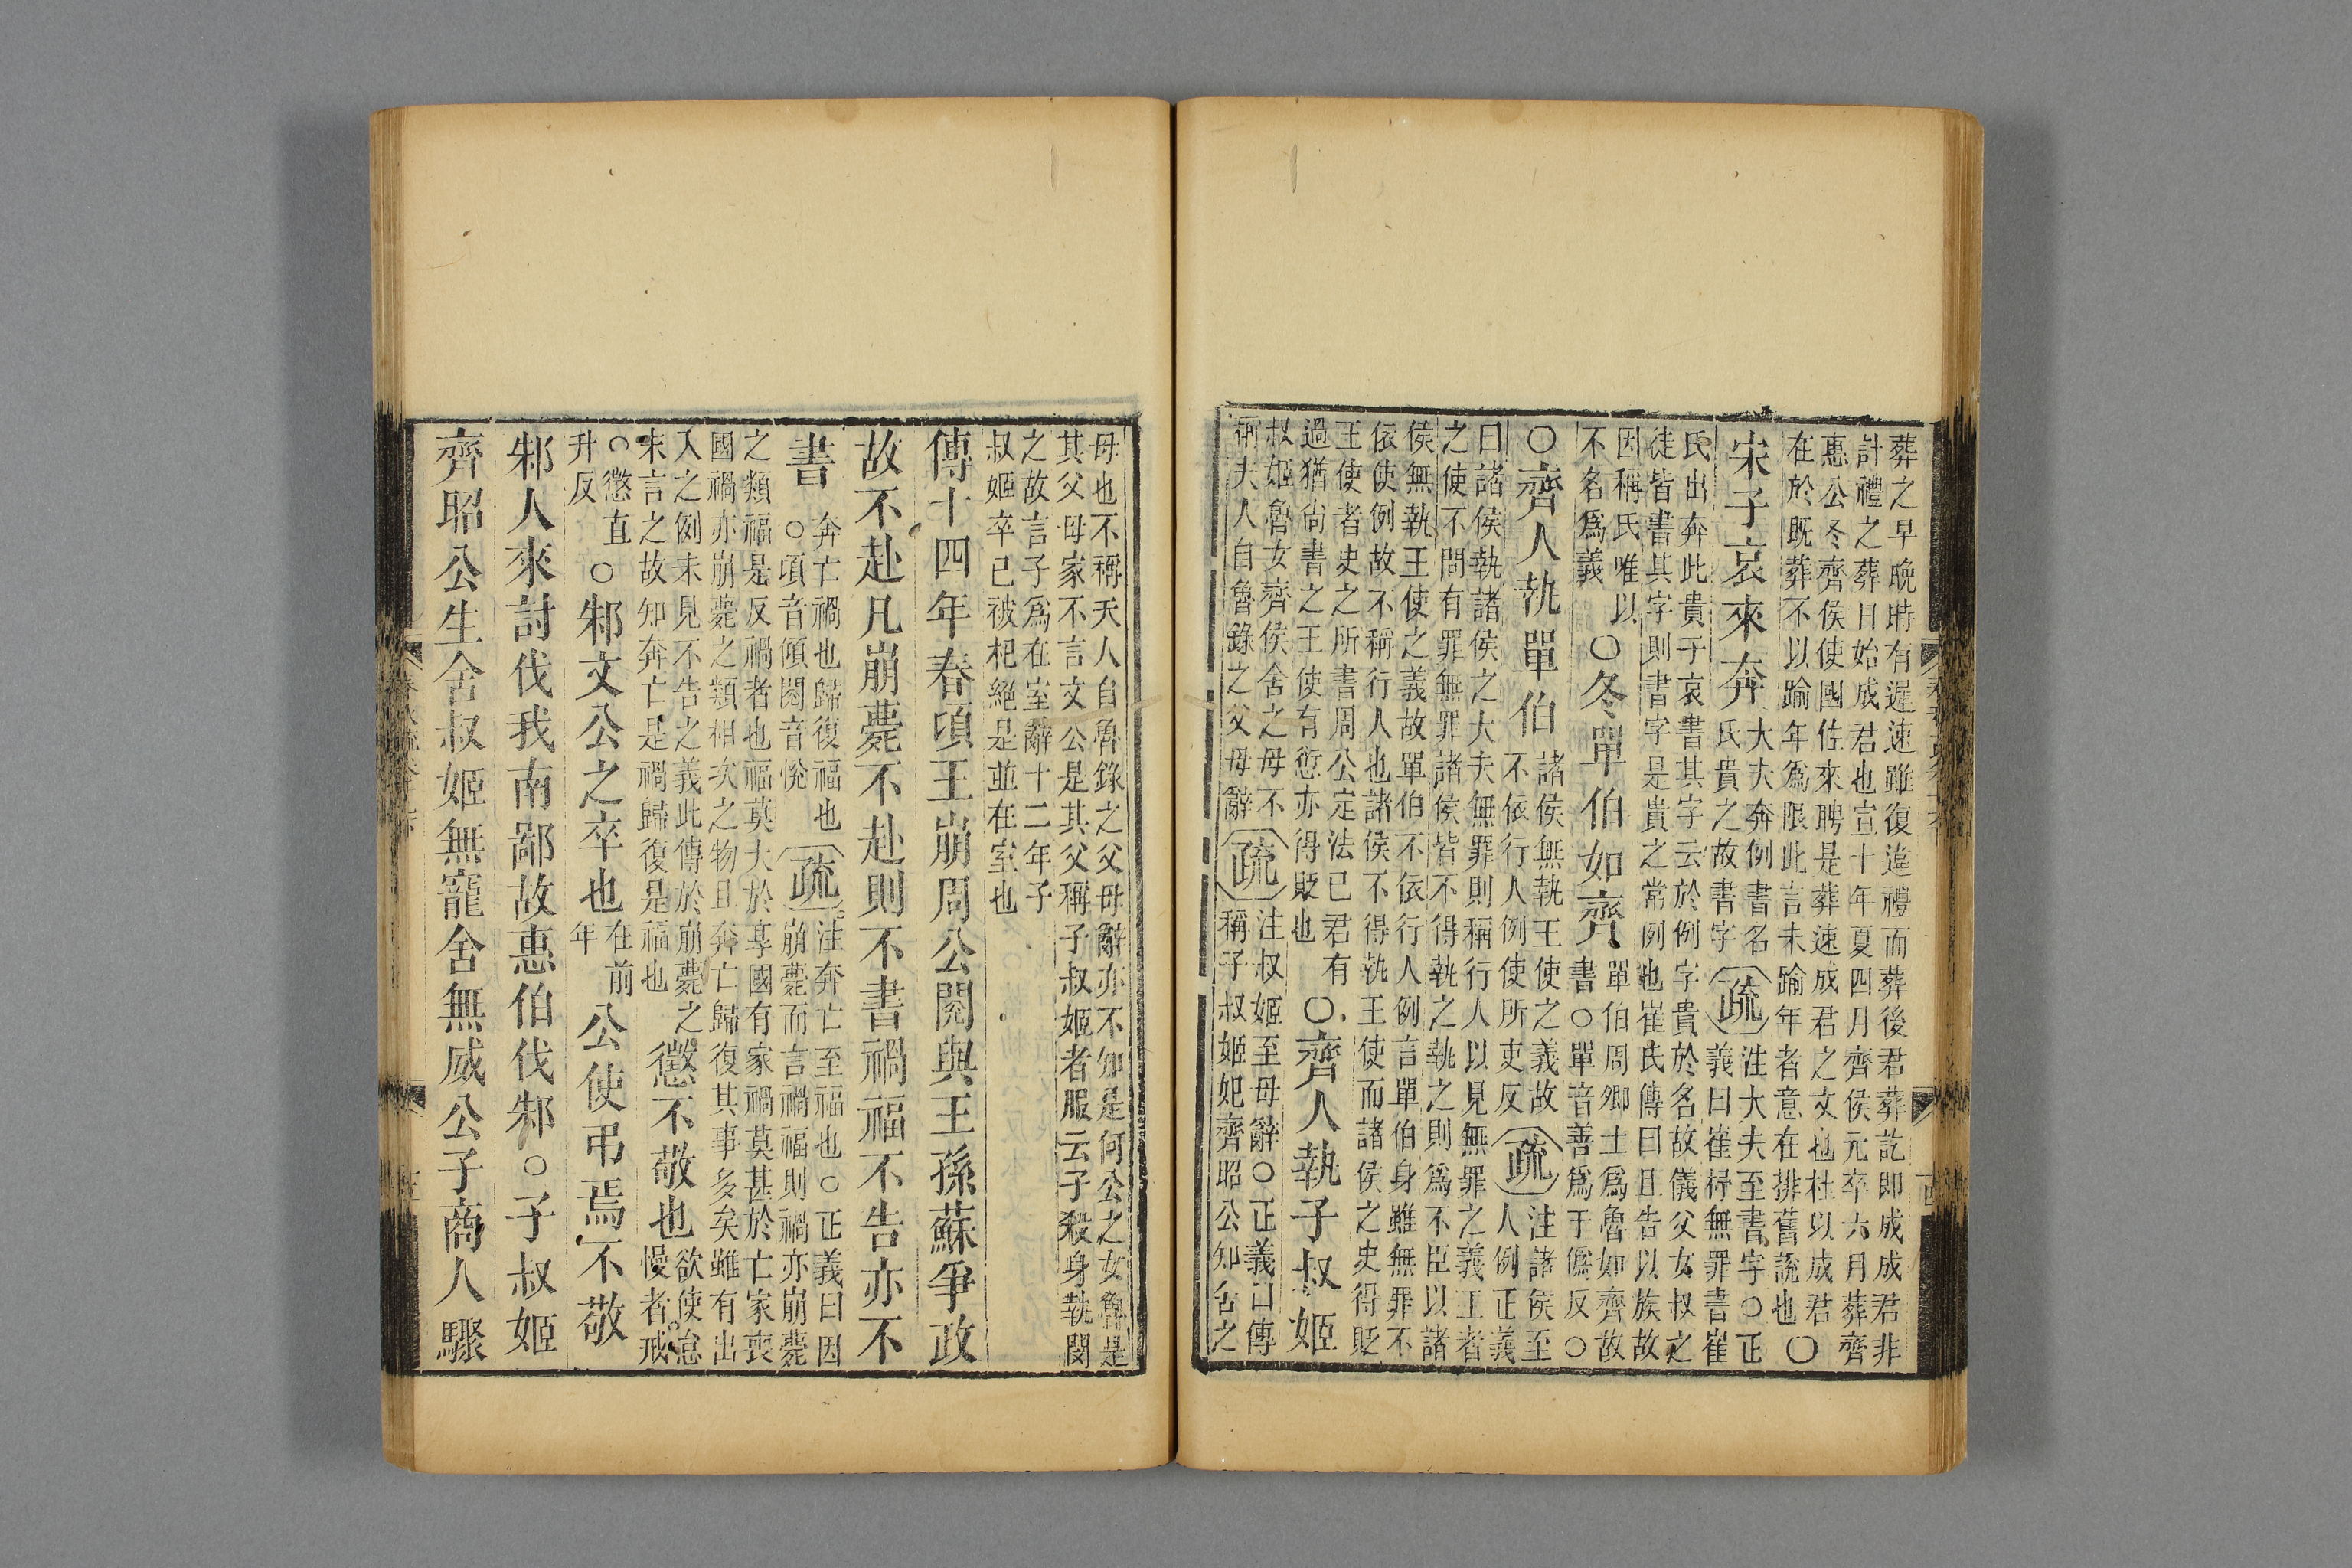 葬之早晚時有遲速雖復違禮而葬後君葬訖即成成君非
計禮之葬日始成君也宣十年夏四月齊侯元卒六月葬齊
惠公冬齊侯使國佐來聘是葬速成君之文也杜以成君
在於既葬不以踰年爲限此言未踰年者意在排舊説也〇
宋子哀來奔
大夫奔例書名
氏貴之故書字
疏
注大夫至書字〇正
義曰崔杼無罪書崔
氏出奔此貴子哀書其字云於例字貴於名故儀父女叔之
徒皆書其字則書字是貴之常例也崔氏傳曰且告以族故
因稱氏唯以
不名爲義
〇冬單伯如齊
單伯周卿士爲魯如齊故
書〇單音善爲于僞反〇
〇齊人執單伯
諸侯無執王使之義故
不依行人例使所吏反
疏
注諸侯至
人例正義
曰諸侯執諸侯之大夫無罪則稱行人以見無罪之義王者
之使不問有罪無罪諸侯皆不得執之執之則爲不臣以諸
侯無執王使之義故單伯不依行人例言單伯身雖無罪不
依使例故不稱行人也諸侯不得執王使而諸侯之史得貶
王使者史之所書周公定法已君有
過猶尚書之王使有愆亦得貶也
〇齊人執子叔姬
叔姬魯女齊侯舍之母不
稱夫人自魯錄之父母辭
疏
注叔姬至母辭〇正義曰傳
稱子叔姬妃齊昭公知舍之
母也不稱夫人自魯錄之父母辭亦不知是何公之女魯是
其父母家不言文公是其父稱子叔姬者服云子殺身執閔
之故言子爲在室辭十二年子
叔姬卒已被杞絕是並在室也
傳十四年春頃王崩周公閱與王孫蘇爭政
故不赴凡崩薨不赴則不書禍福不告亦不
書
奔亡禍也歸復福也
〇頃音傾閱音悅
疏
注奔亡至福也〇正義曰因
崩薨而言禍福則禍亦崩薨
之類福是反禍者也福莫大於享國有家禍莫甚於亡家喪
國禍亦崩薨之類相次之物且奔亡歸復其事多矣雖有出
入之例未見不告之義此傳於崩薨之
末言之故知奔亡是禍歸復是福也
懲不敬也
欲使怠
慢者戒
〇懲直
升反
〇邾文公之卒也
在前
年
公使弔焉不敬
邾人來討伐我南鄙故惠伯伐邾〇子叔姬
齊昭公生舍叔姬無寵舍無威公子商人驟